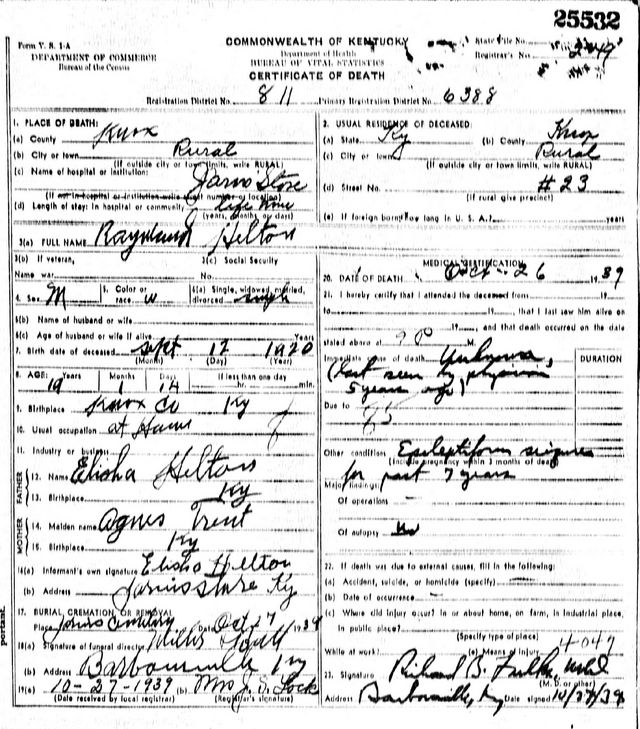 25532
Form V. S. 1-A
DEPARTMENT OF COMMERCE
Bureau of the Census
COMMONWEALTH OF KENTUCKY
Department of Health
BUREAU OF VITAL STATISTICS
CERTIFICATE OF DEATH
State File No.
Registrar's No.
Registration District No. 811 Primary Registration District No. 6388
1. PLACE OF DEATH:
(a) County Knox
(b) City or town Rural
(If outside city or town limits, write RURAL)
(c) Name of hospital or institution:
Jarvis Store
(If not in hospital or institution write street number or location)
(d) Length of stay: In hospital or community life time
(years, months, or days)
3(a) FULL NAME Raymond Helton
3(b) If veteran,
Name war
3(c) Social Security
No.
4. Sex M
5. Color or
race w
6(a) Single, widowed, married,
divorced single
6(b) Name of husband or wife
6(c) Age of husband or wife if alive Years
7. Birth date of deceased Sept 12 1920
(Month) (Day) (Year)
8. AGE: Years Months Days If less than one day
19 1 14 hr. min.
9. Birthplace Knox Co Ky
10. Usual occupation at Home
11. Industry or business
FATHER
12. Name Elisha Helton
13. Birthplace Ky
MOTHER
14. Maiden name Agnes Trent
15. Birthplace Ky
16(a) Informant's own signature Elisha Helton
(b) Address Jarvis Store Ky
17. BURIAL, CREMATION, OR REMOVAL
Place Jarvis Cemetery Date Oct 27 1939
18(a) Signature of funeral director
(b) Address Barbourville Ky
19(a) 10-27-1939 (b) Mrs J. S. Lock
(Date received by local registrar) (Registrar's signature)
2. USUAL RESIDENCE OF DECEASED:
(a) State Ky (b) County Knox
(c) City or town Rural
(If outside city or town limits, write RURAL)
(d) Street No. #23
(If rural give precinct)
(e) If foreign born how long in U. S. A.? years
MEDICAL CERTIFICATION
20. DATE OF DEATH Oct - 26 1939
21. I hereby certify that I attended the deceased from 19
to 19, that I last saw him alive on
19, and that death occurred on the date
stated above at P M.
Immediate cause of death Unknown,
(Last seen by physician
5 years ago)
DURATION
Due to
Other conditions Epileptiform seizures
(Include pregnancy within 3 months of death)
for past 7 years
Major findings:
Of operations
Of autopsy no
22. If death was due to external causes, fill in the following:
(a) Accident, suicide, or homicide (specify)
(b) Date of occurrence
(c) Where did injury occur? In or about home, on farm, in industrial place,
in public place?
(Specify type of place)
While at work? (e) Means of injury
23. Signature Richard B. Fulks, M.D.
(M. D. or other)
Address Barbourville, Ky Date signed 10/27/39
portant.